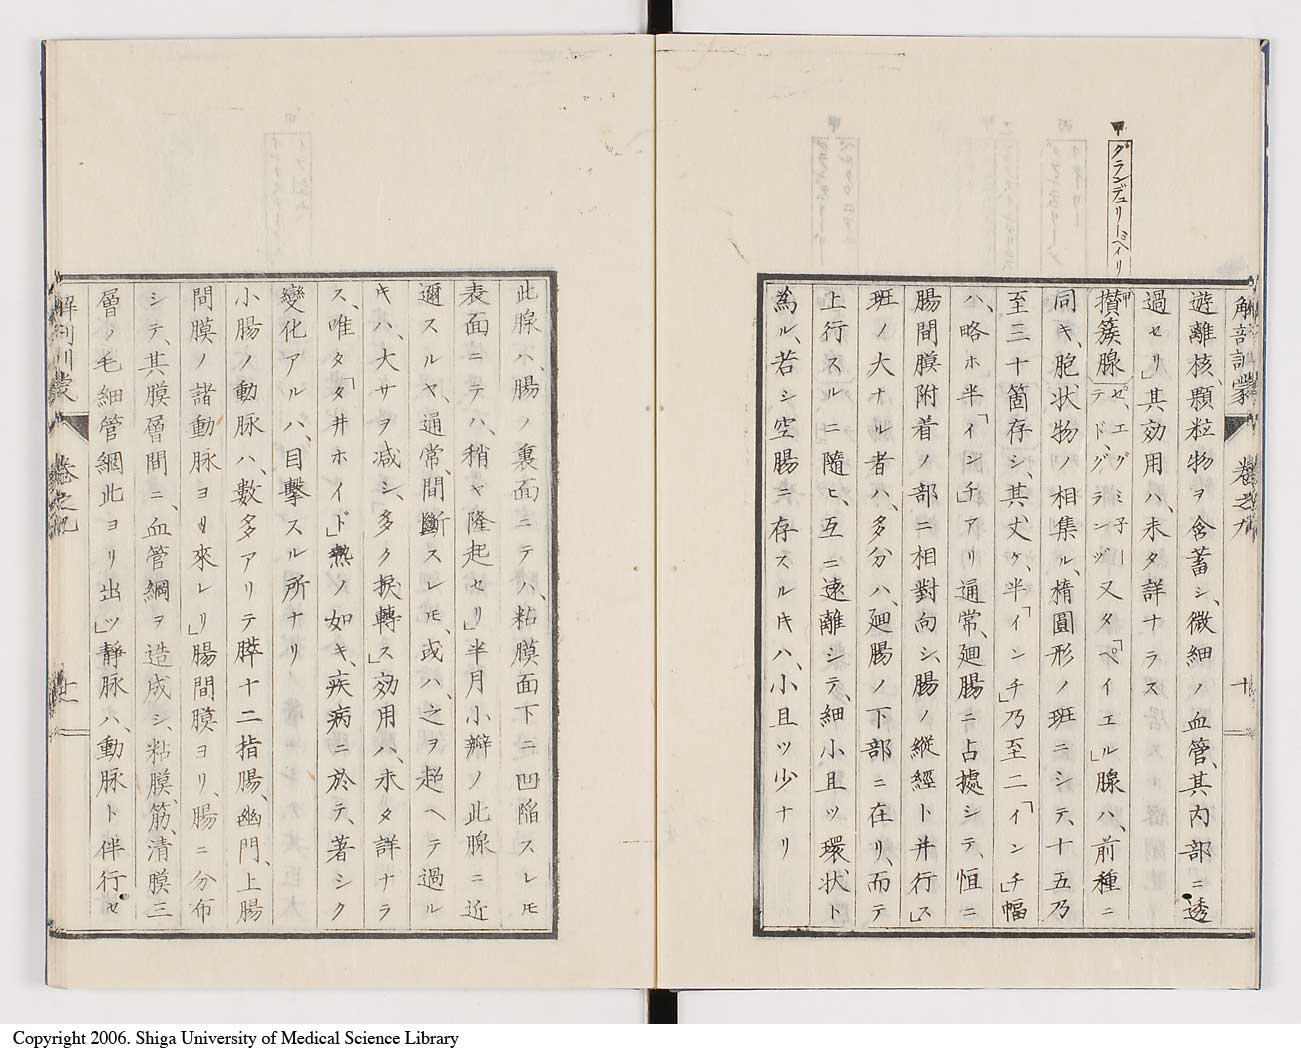 甲
グランデュリーペイリ
解剖訓蒙
卷之九
十
遊離核、顆粒物ヲ含蓄シ、微細ノ血管、其内部ニ透
過セリ」其効用ハ、未タ詳ナラス
甲攢簇腺 ゼ、エグミ子ーテドグランヅ 又タ「ペイエル」腺ハ、前種ニ
同キ、胞状物ノ相集ル、橢圓形ノ班ニシテ、十五乃
至三十箇存シ、其丈ケ、半「インチ」乃至二「インチ」幅
ハ、略ホ半「インチ」アリ通常、廻腸ニ占據シテ、恒ニ
腸間膜附着ノ部ニ相對向シ、腸ノ縱經ト并行ス」
班ノ大ナル者ハ、多分ハ、廻腸ノ下部ニ在リ、而テ
上行スルニ隨ヒ、互ニ遠離シテ、細小且ツ環状ト
為ル、若シ空腸ニ存スルキハ、小且ツ少ナリ
此腺ハ、腸ノ裏面ニテハ、粘膜面下ニ凹陷スレ𪜈
表面ニテハ、稍ヤ隆起セリ」半月小瓣ノ此腺ニ近
邇スルヤ、通常、間斷スレ𪜈、或ハ、之ヲ超ヘテ過ル
キハ、大サヲ減シ、多ク捩轉ス」効用ハ、未タ詳ナラ
ス、唯タ「タ井ホイド」熱ノ如キ、疾病ニ於テ、著シク
變化アルハ、目擊スル所ナリ
小腸ノ動脉ハ、數多アリテ膵十二指腸、幽門、上腸
間膜ノ諸動脉ヨリ來レリ」腸間膜ヨリ、腸ニ分布
シテ、其膜層間ニ、血管綱ヲ造成シ、粘膜、筋、清膜三
層ノ毛細管綱此ヨリ出ツ」靜脉ハ、動脉ト伴行セ
解剖訓蒙
卷之九
十一
Copyright 2006. Shiga University of Medical Science Library